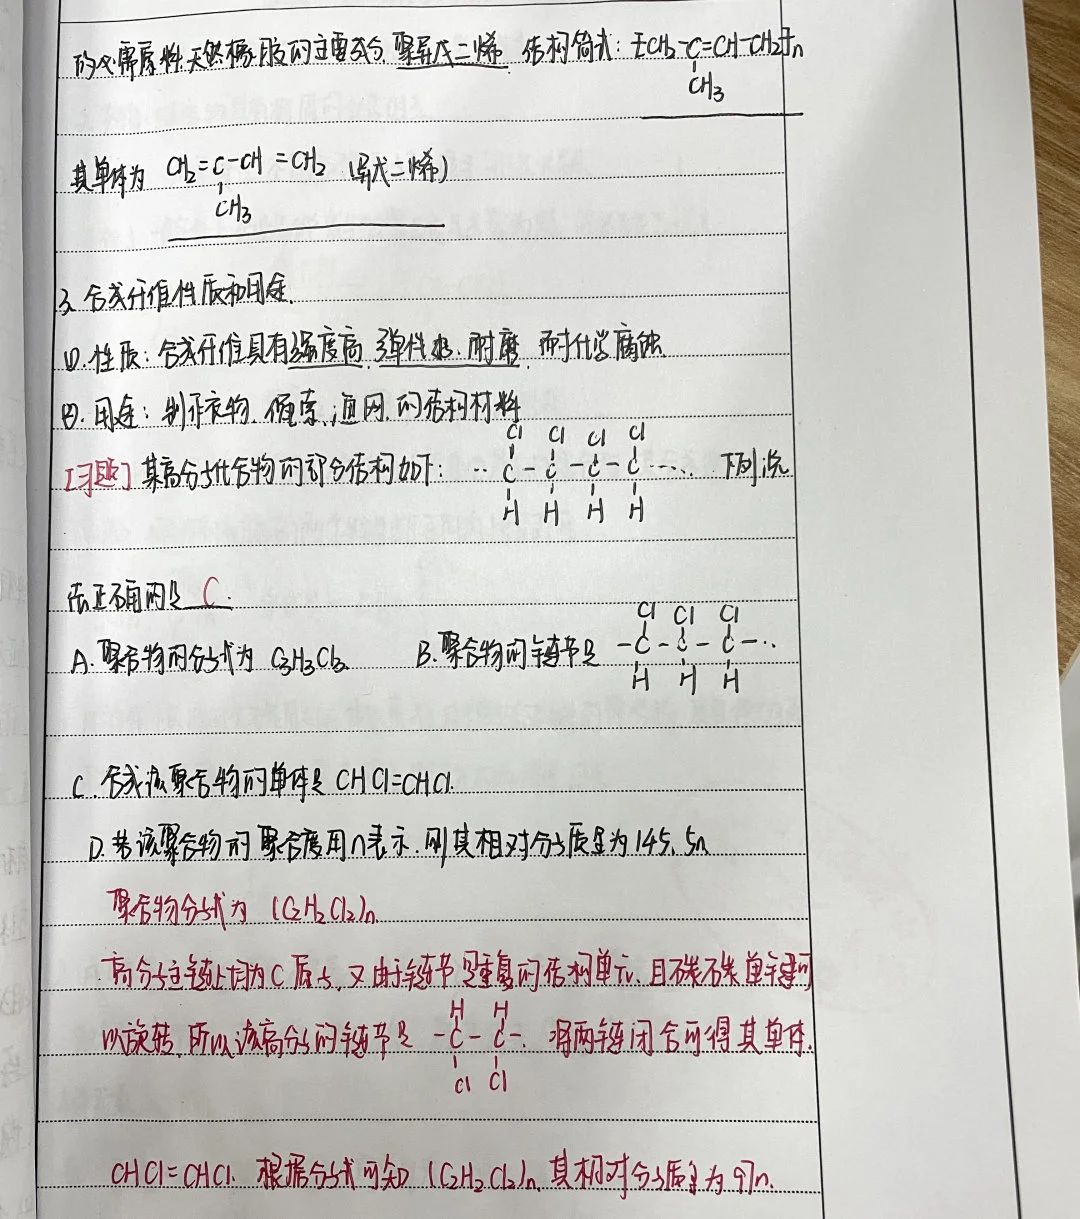 天然橡胶的主要成分 聚异戊二烯. 结构简式: ⁅CH₂-C=CH-CH₂⁆n
CH₃
其单体为 CH₂=C-CH=CH₂ (异戊二烯)
CH₃
3. 合成纤维性质和用途.
①. 性质: 合成纤维具有强度高. 弹性好. 耐磨. 耐化学腐蚀.
②. 用途: 制作衣物. 绳索. 渔网. 的结构材料
Cl Cl Cl Cl
[习题] 某高分子化合物的部分结构如下: ··C-C-C-C···· 下列说
H H H H
法正确的是 C.
Cl Cl Cl
A. 聚合物的分子式为 C₃H₃Cl₃. B. 聚合物的链节是 -C-C-C-··
H H H
C. 合成该聚合物的单体是 CHCl=CHCl.
D. 若该聚合物的聚合度用n表示. 则其相对分子质量为145.5n
聚合物分子式为 (C₂H₂Cl₂)n
高分子主链上均为C原子, 又由于链节是重复的结构单元. 且碳碳单键可
H H
以旋转. 所以该高分子的链节是 -C-C-. 将两链闭合可得其单体.
Cl Cl
CHCl=CHCl. 根据分子式可知 (C₂H₂Cl₂)n. 其相对分子质量为97n.